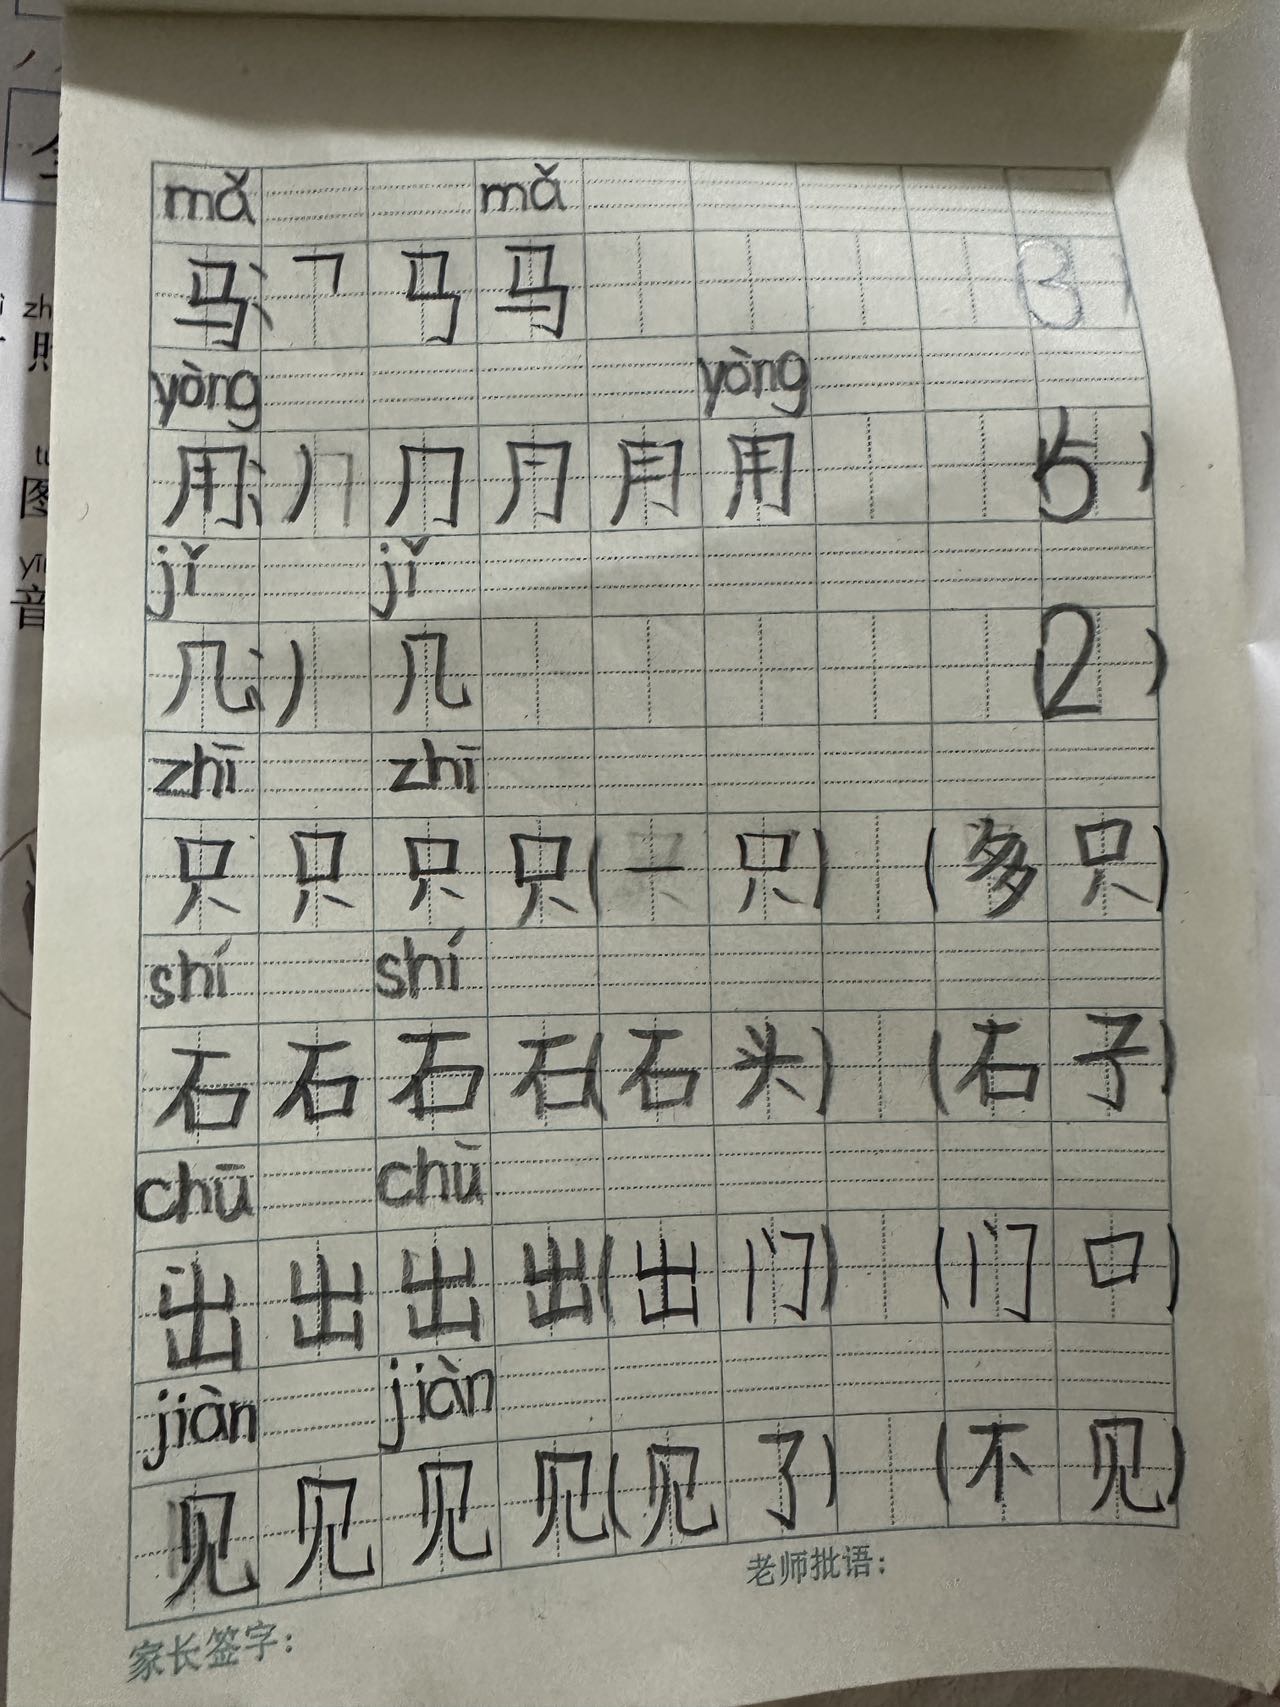 mǎ mǎ
马: ㇕ 马 马 3)
yòng yòng
用: 丿 ⺆ 月 月 用 5)
jǐ jǐ
几: 丿 几 2)
zhī zhī
只 只 只 只 (一 只) (多 只)
shí shí
石 石 石 石 (石 头) (石 子)
chū chū
出 出 出 出 (出 门) (门 口)
jiàn jiàn
见 见 见 见 (见 了) (不 见)
老师批语:
家长签字:
zh
图
yī
音